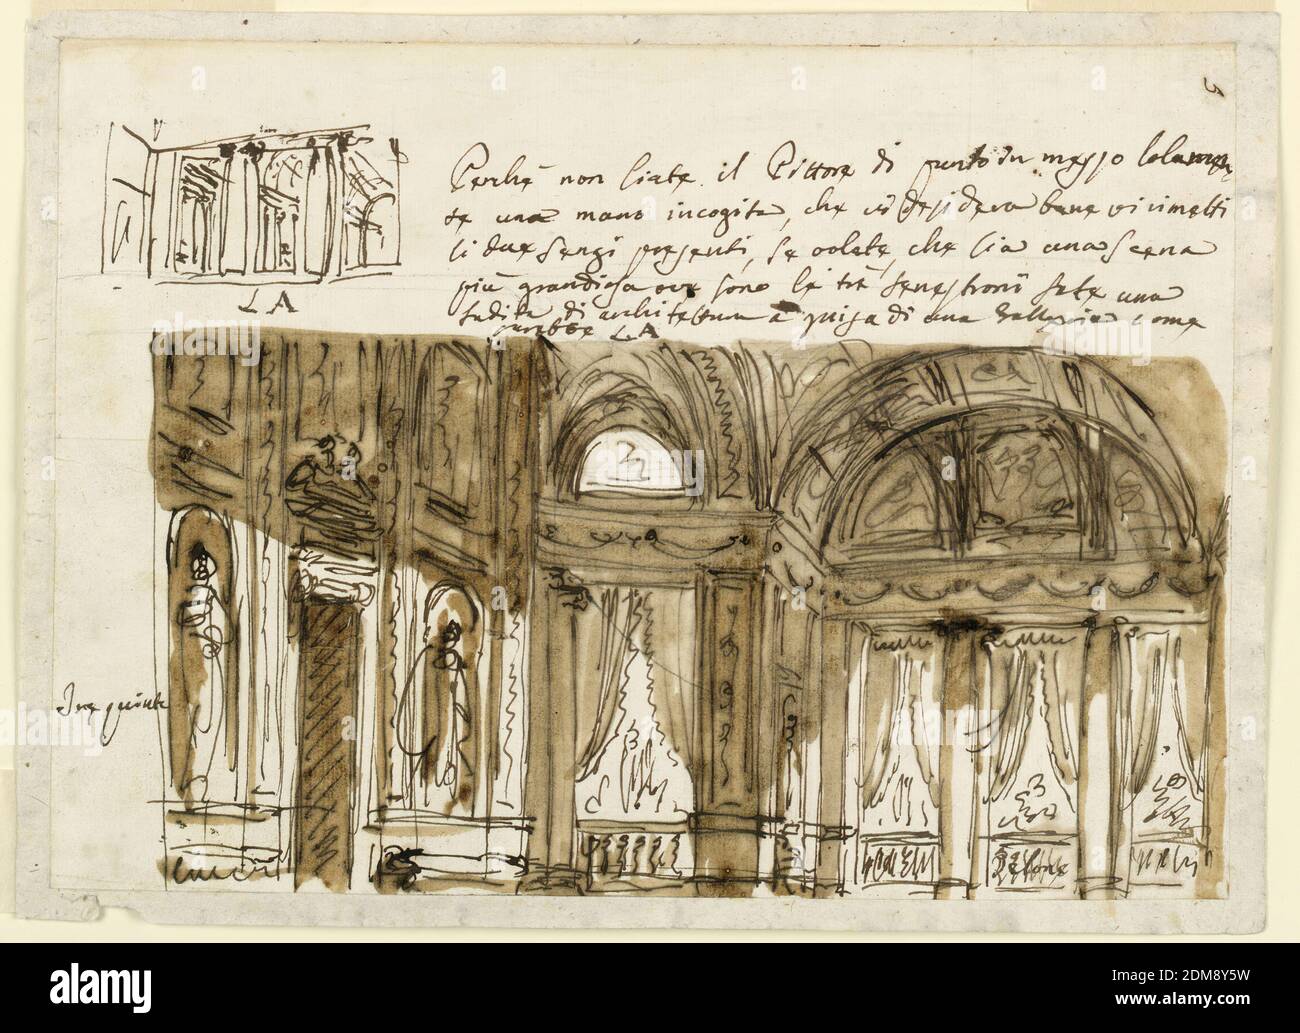 5
Perche non siate il Pittore di punto in mezzo solamen
te una mano incognita, che vi desidera bene vi rimetti
li due senzi presenti, se volete, che sia una scena
più grandiosa ove sono le tre fenestroni fate una
fudita di architettura a guisa di una Galleria come
sarebbe LA
LA
alamy
DM8Y5W
www.alamy.com